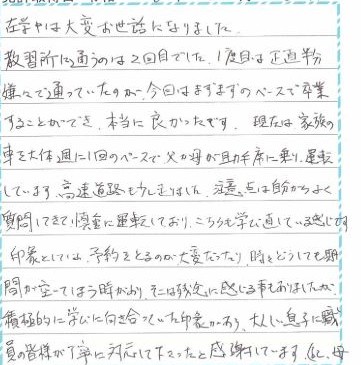 在学中は大変お世話になりました。
教習所に通うのは2回目でした。1度目は正直半分
嫌々で通っていたのが、今回はまずまずのペースで卒業
することができ、本当に良かったです。現在は家族の
車を大体週に1回のペースで父か母が助手席に乗り、運転
しています。高速道路も少し走りました。注意点は自分からよく
質問してきて慎重に運転しており、こちらも学び直している感じです
印象としては、予約をとるのが大変だったり、時をどうしても期
間が空いてしまう時があり、そこは残念に感じる事もありましたが、
積極的に学びに向き合っていた印象があり、大人しい息子に職
員の皆様が丁寧に対応して下さったと感謝しています。(父、母